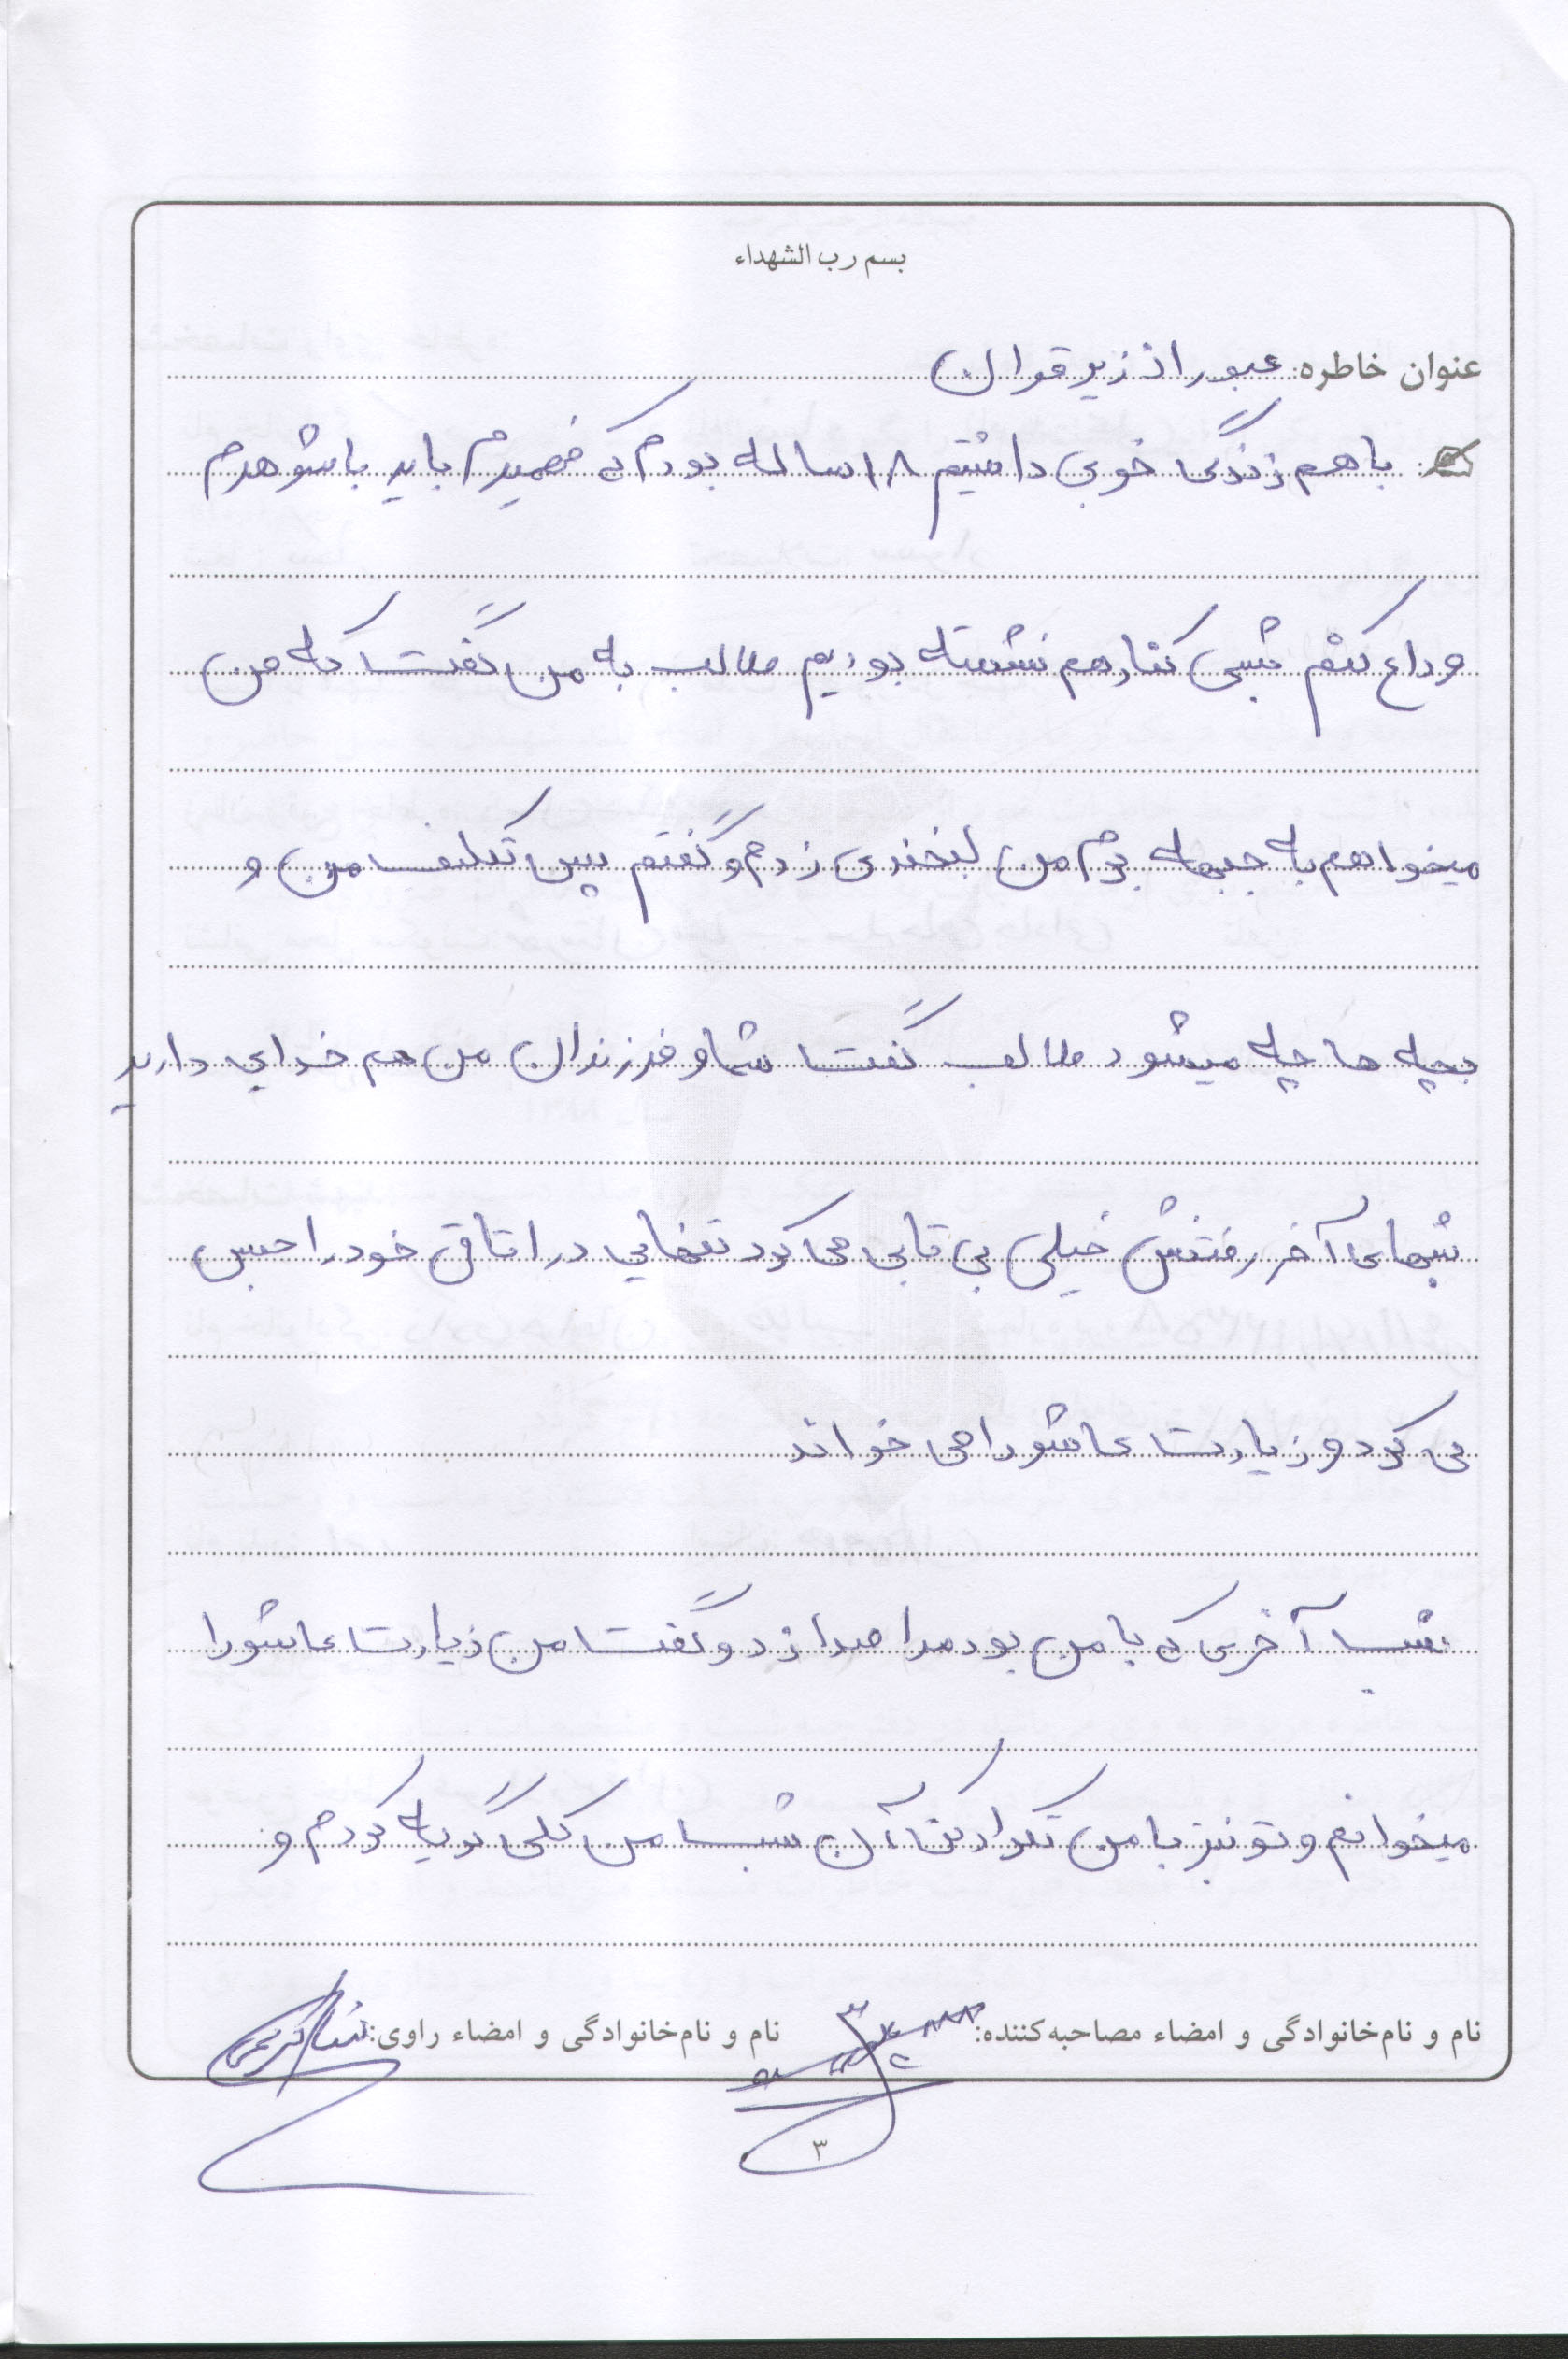 بسم رب الشهداء
عنوان خاطره: عبور از زیر قرآن
با هم زندگی خوبی داشتیم ۱۸ ساله بودم که فهمیدم باید با شوهرم
وداع کنم شبی کنار هم نشسته بودیم طالب به من گفت که من
میخواهم به جبهه بروم من لبخندی زدم و گفتم پس تکلیف من و
بچه ها چه میشود طالب گفت شما و فرزندان من هم خدایی دارید
شبهای آخر رفتنش خیلی بی تابی می کرد تنهایی در اتاق خود را حبس
می کرد و زیارت عاشورا می خواند
شب آخری که با من بود مرا صدا زد و گفت من زیارت عاشورا
میخوانم و تو نیز با من تکرار کن آن شب من کلی گریه کردم و
نام و نام‌خانوادگی و امضاء مصاحبه‌کننده: نام و نام‌خانوادگی و امضاء راوی:
۳